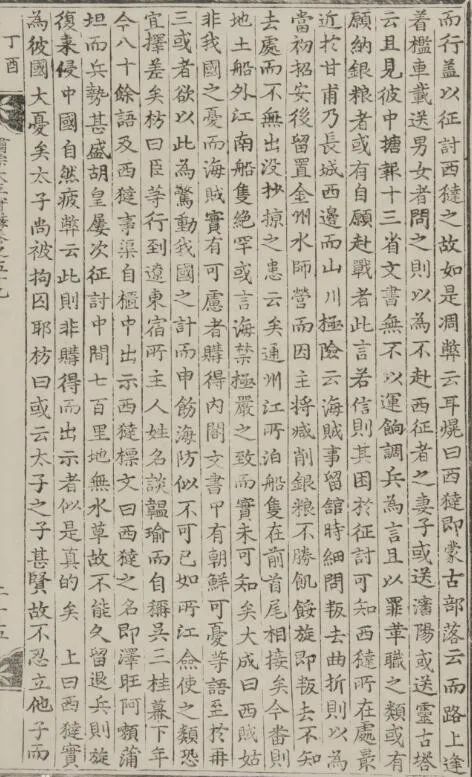 而行盖以征討西㺚之故如是凋弊云耳㷜曰西㺚即蒙古部落云而路上逢
着檻車載送男女者問之則以為不赴西征者之妻子或送瀋陽或送靈古塔
云且見彼中搪報十三省文書無不以運餉調兵為言且以罪革職之類或有
願納銀粮者或有自願赴戰者此言若信則其困於征討可知西㺚所在處最
近於甘甫乃長城西邊而山川極險云海賊事留舘時細問叛去曲折則以為
當初招安後留置金州水師營而因主將减削銀粮不勝飢餒旋即叛去不知
去處而不無出没抄掠之患云矣通州江所泊船隻在前首尾相接矣今畨則
地土船外江南船隻絶罕或言海禁極嚴之致而實未可知矣大成曰西賊姑
非我國之憂而海賊實有可慮者購得内閣文書中有朝鮮可憂等語至於再
三或者欲以此為驚動我國之計而申飭海防似不可已如所江僉使之類恐
宜擇差矣枋曰臣等行到遼東宿所主人姓名談韞瑜而自稱吴三桂幕下年
今八十餘語及西㺚事渠自櫃中出示西㺚標文曰西㺚之名即澤旺阿㘓蒲
坦而兵勢甚盛胡皇屢次征討中間七百里地無水草故不能久留退兵則旋
復来侵中國自然疲弊云此則非購得而出示者似是真的矣 上曰西㺚實
為彼國大憂矣太子尚被拘囚耶枋曰或云太子之子甚賢故不忍立他子而
丁酉